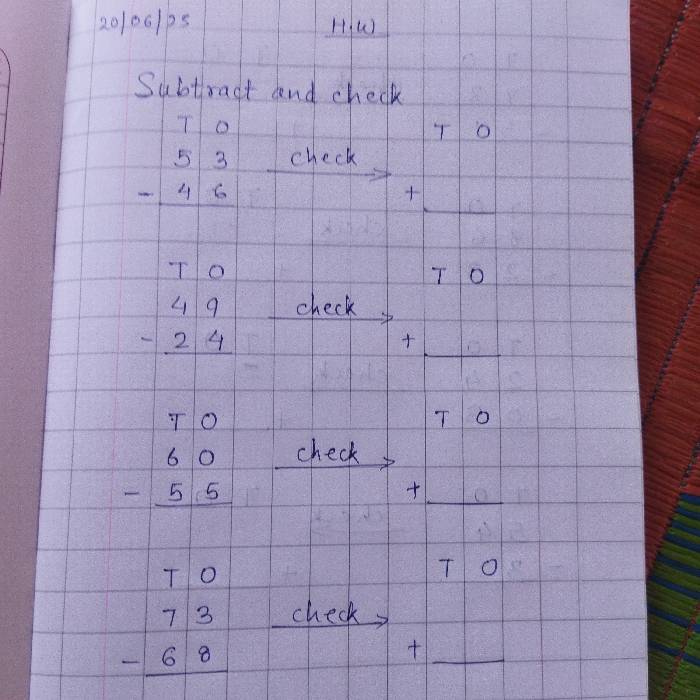 20/06/25 H.W
Subtract and check
T O T O
5 3 check
- 4 6 +
T O T O
4 9 check
- 2 4 +
T O T O
6 0 check
- 5 5 +
T O T O
7 3 check
- 6 8 +